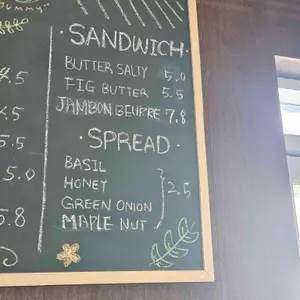 UMMY
4.5
4.5
5.5
5.0
5.8
· SANDWICH ·
BUTTER SALTY 5.0
FIG BUTTER 5.5
JAMBON BEURRE 7.8
· SPREAD ·
BASIL
HONEY
GREEN ONION
MAPLE NUT
2.5